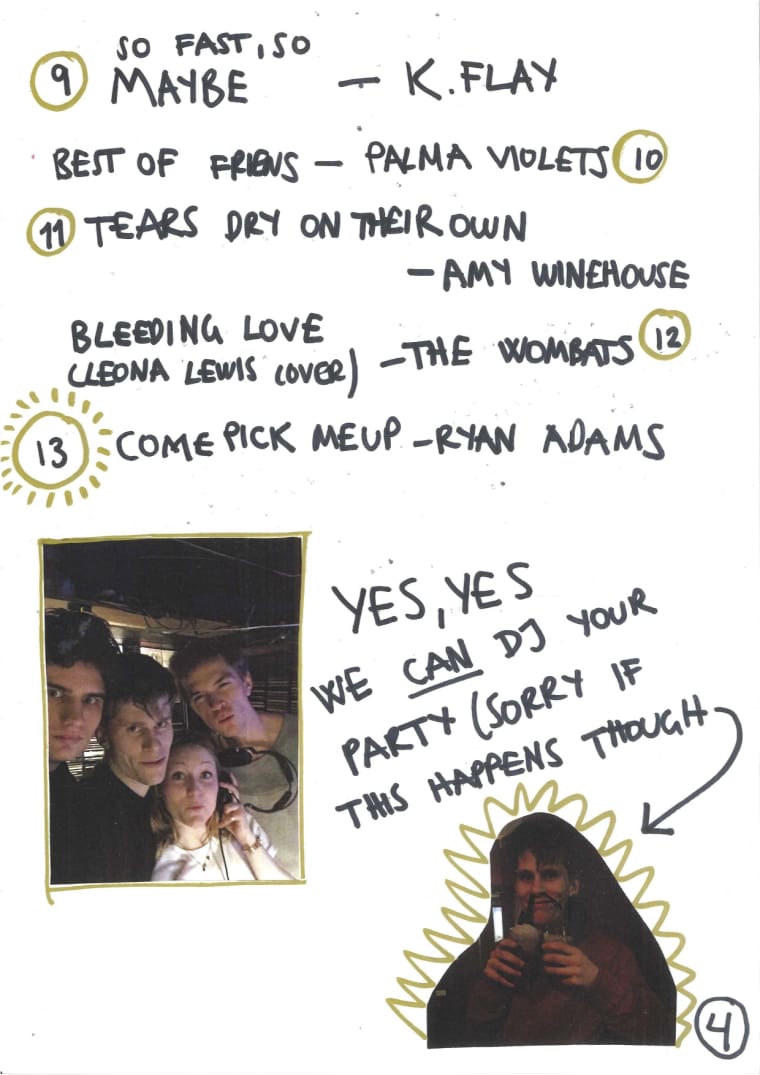 9 SO FAST, SO
MAYBE — K.FLAY
BEST OF FRIENS — PALMA VIOLETS 10
11 TEARS DRY ON THEIR OWN
— AMY WINEHOUSE
BLEEDING LOVE
(LEONA LEWIS COVER) — THE WOMBATS 12
13 COME PICK ME UP — RYAN ADAMS
YES, YES
WE CAN DJ YOUR
PARTY (SORRY IF
THIS HAPPENS THOUGH
4